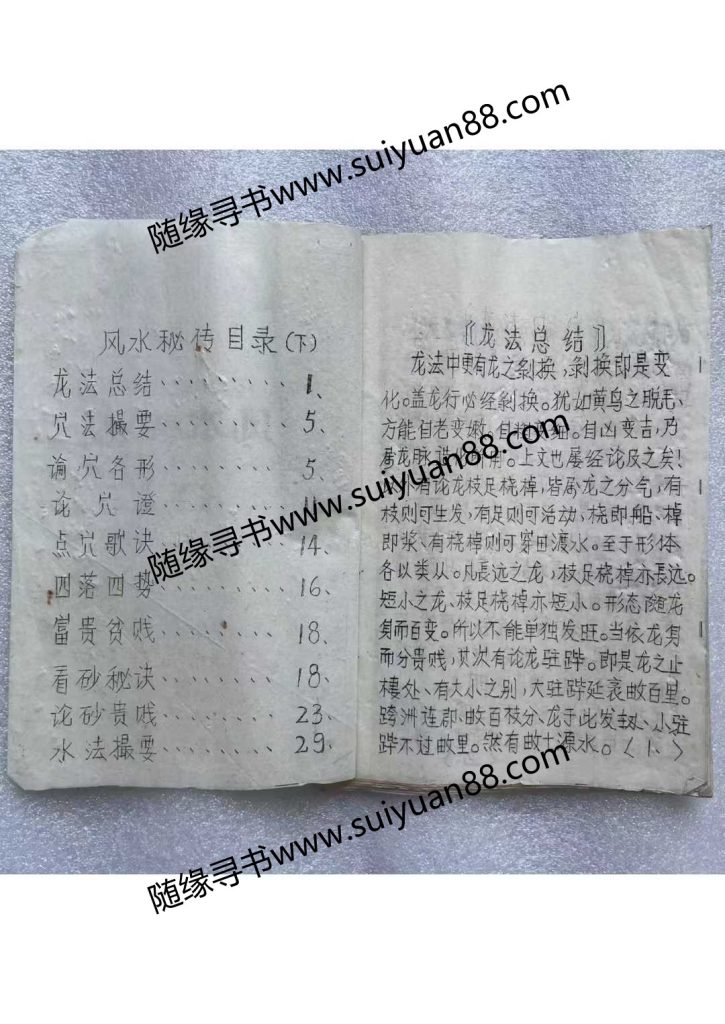 随缘寻书www.suiyuan88.com
风水秘传目录(下)
龙法总结········· 1、
穴法撮要········· 5、
论穴各形········· 5、
论穴證········· 11、
点穴歌诀········· 14、
四落四势········· 16、
富贵贫贱········· 18、
看砂秘诀········· 18、
论砂贵贱········· 23、
水法撮要········· 29、
《龙法总结》
龙法中更有龙之剝换,剝换即是变
化。盖龙行必经剝换。犹如黄鸟之脱毛、
方能自老变嫩。自粗变细。自凶变吉,乃
属龙脉。上文也屡经论及之矣!
有论龙枝足桡棹,皆属龙之分气,有
枝则可生发,有足则可活动,桡即船、棹
即桨、有桡棹则可穿田渡水。至于形体
各以类从。凡長远之龙,枝足桡棹亦長远。
短小之龙、枝足桡棹亦短小。形态随龙
身而百变。所以不能单独发旺。当依龙身
而分贵贱,其次有论龙驻跸。即是龙之止
楼处、有大小之别,大驻跸延袤数百里。
跨洲连郡、数百枝分、龙于此发、小驻
跸不过数里。然有数十源水。〈1、〉
随缘寻书www.suiyuan88.com
随缘寻书www.suiyuan88.com